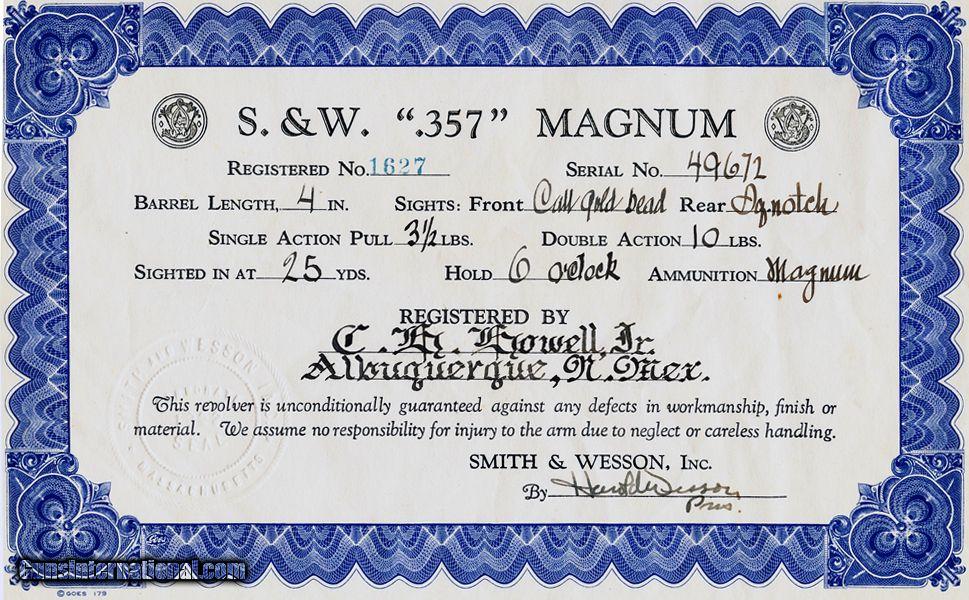 S. & W. “.357” MAGNUM
REGISTERED NO. 1627 SERIAL NO. 49672
BARREL LENGTH, 4 IN. SIGHTS: FRONT Call gold bead REAR Sq. notch
SINGLE ACTION PULL 3½ LBS. DOUBLE ACTION 10 LBS.
SIGHTED IN AT 25 YDS. HOLD 6 o'clock AMMUNITION Magnum
REGISTERED BY
C. H. Howell, Jr.
Albuquerque, N. Mex.
This revolver is unconditionally guaranteed against any defects in workmanship, finish or
material. We assume no responsibility for injury to the arm due to neglect or careless handling.
SMITH & WESSON, INC.
By Harold Wesson
Pres.
SMITH AND WESSON
MASSACHUSETTS
GunsInternational.com
© GOES 179